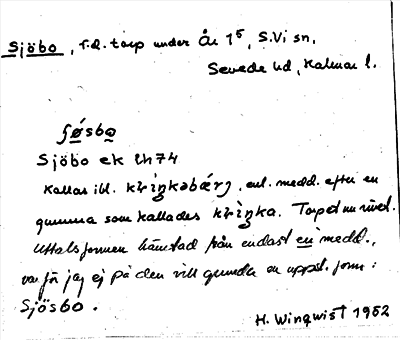 Sjöbo, f.d. torp under År 1⁵, S.Vi sn,
Sevede hd, Kalmar l.
ʃǿsbo̲
Sjöbo ek Lh74
Kallas ibl. krìŋkəbærj, enl. medd. efter en
gumma som kallades krìŋka. Torpet nu rivet.
Uttalsformen hämtad från endast en medd.,
varför jag ej på den vill grunda en uppsl. form:
Sjösbo.
H. Winqwist 1952